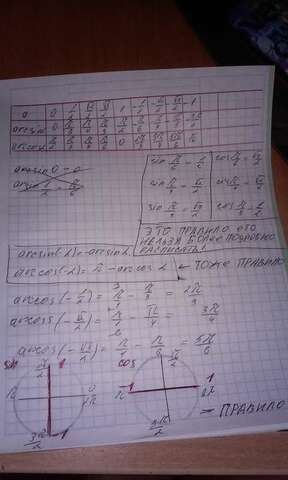 a 0 1/2 √2/2 √3/2 1 -1/2 -√2/2 -√3/2 -1
arcsin 0 π/6 π/4 π/3 π/2
arccos π/2 π/3 π/4 π/6 0 2π/3 3π/4 5π/6 π
arcsin 0 = 0
arcsin 1/2 = π/6
sin π/6 = 1/2 cos π/6 = √3/2
sin π/4 = √2/2 cos π/4 = √2/2
sin π/3 = √3/2 cos π/3 = 1/2
ЭТО ПРАВИЛО ЕГО
НЕЛЬЗЯ БОЛЕЕ ПОДРОБНО
РАСПИСАТЬ!
arcsin(-α) = -arcsin α
arccos(-α) = π - arccos α ← ТОЖЕ ПРАВИЛО
arccos(-1/2) = π/1 - π/3 = 2π/3
arccos(-√2/2) = π/1 - π/4 = 3π/4
arccos(-√3/2) = π/1 - π/6 = 5π/6
sin π/2 1 cos π/2
π 0 2π π 1 2π
3π/2 -1 3π/2
— ПРАВИЛО